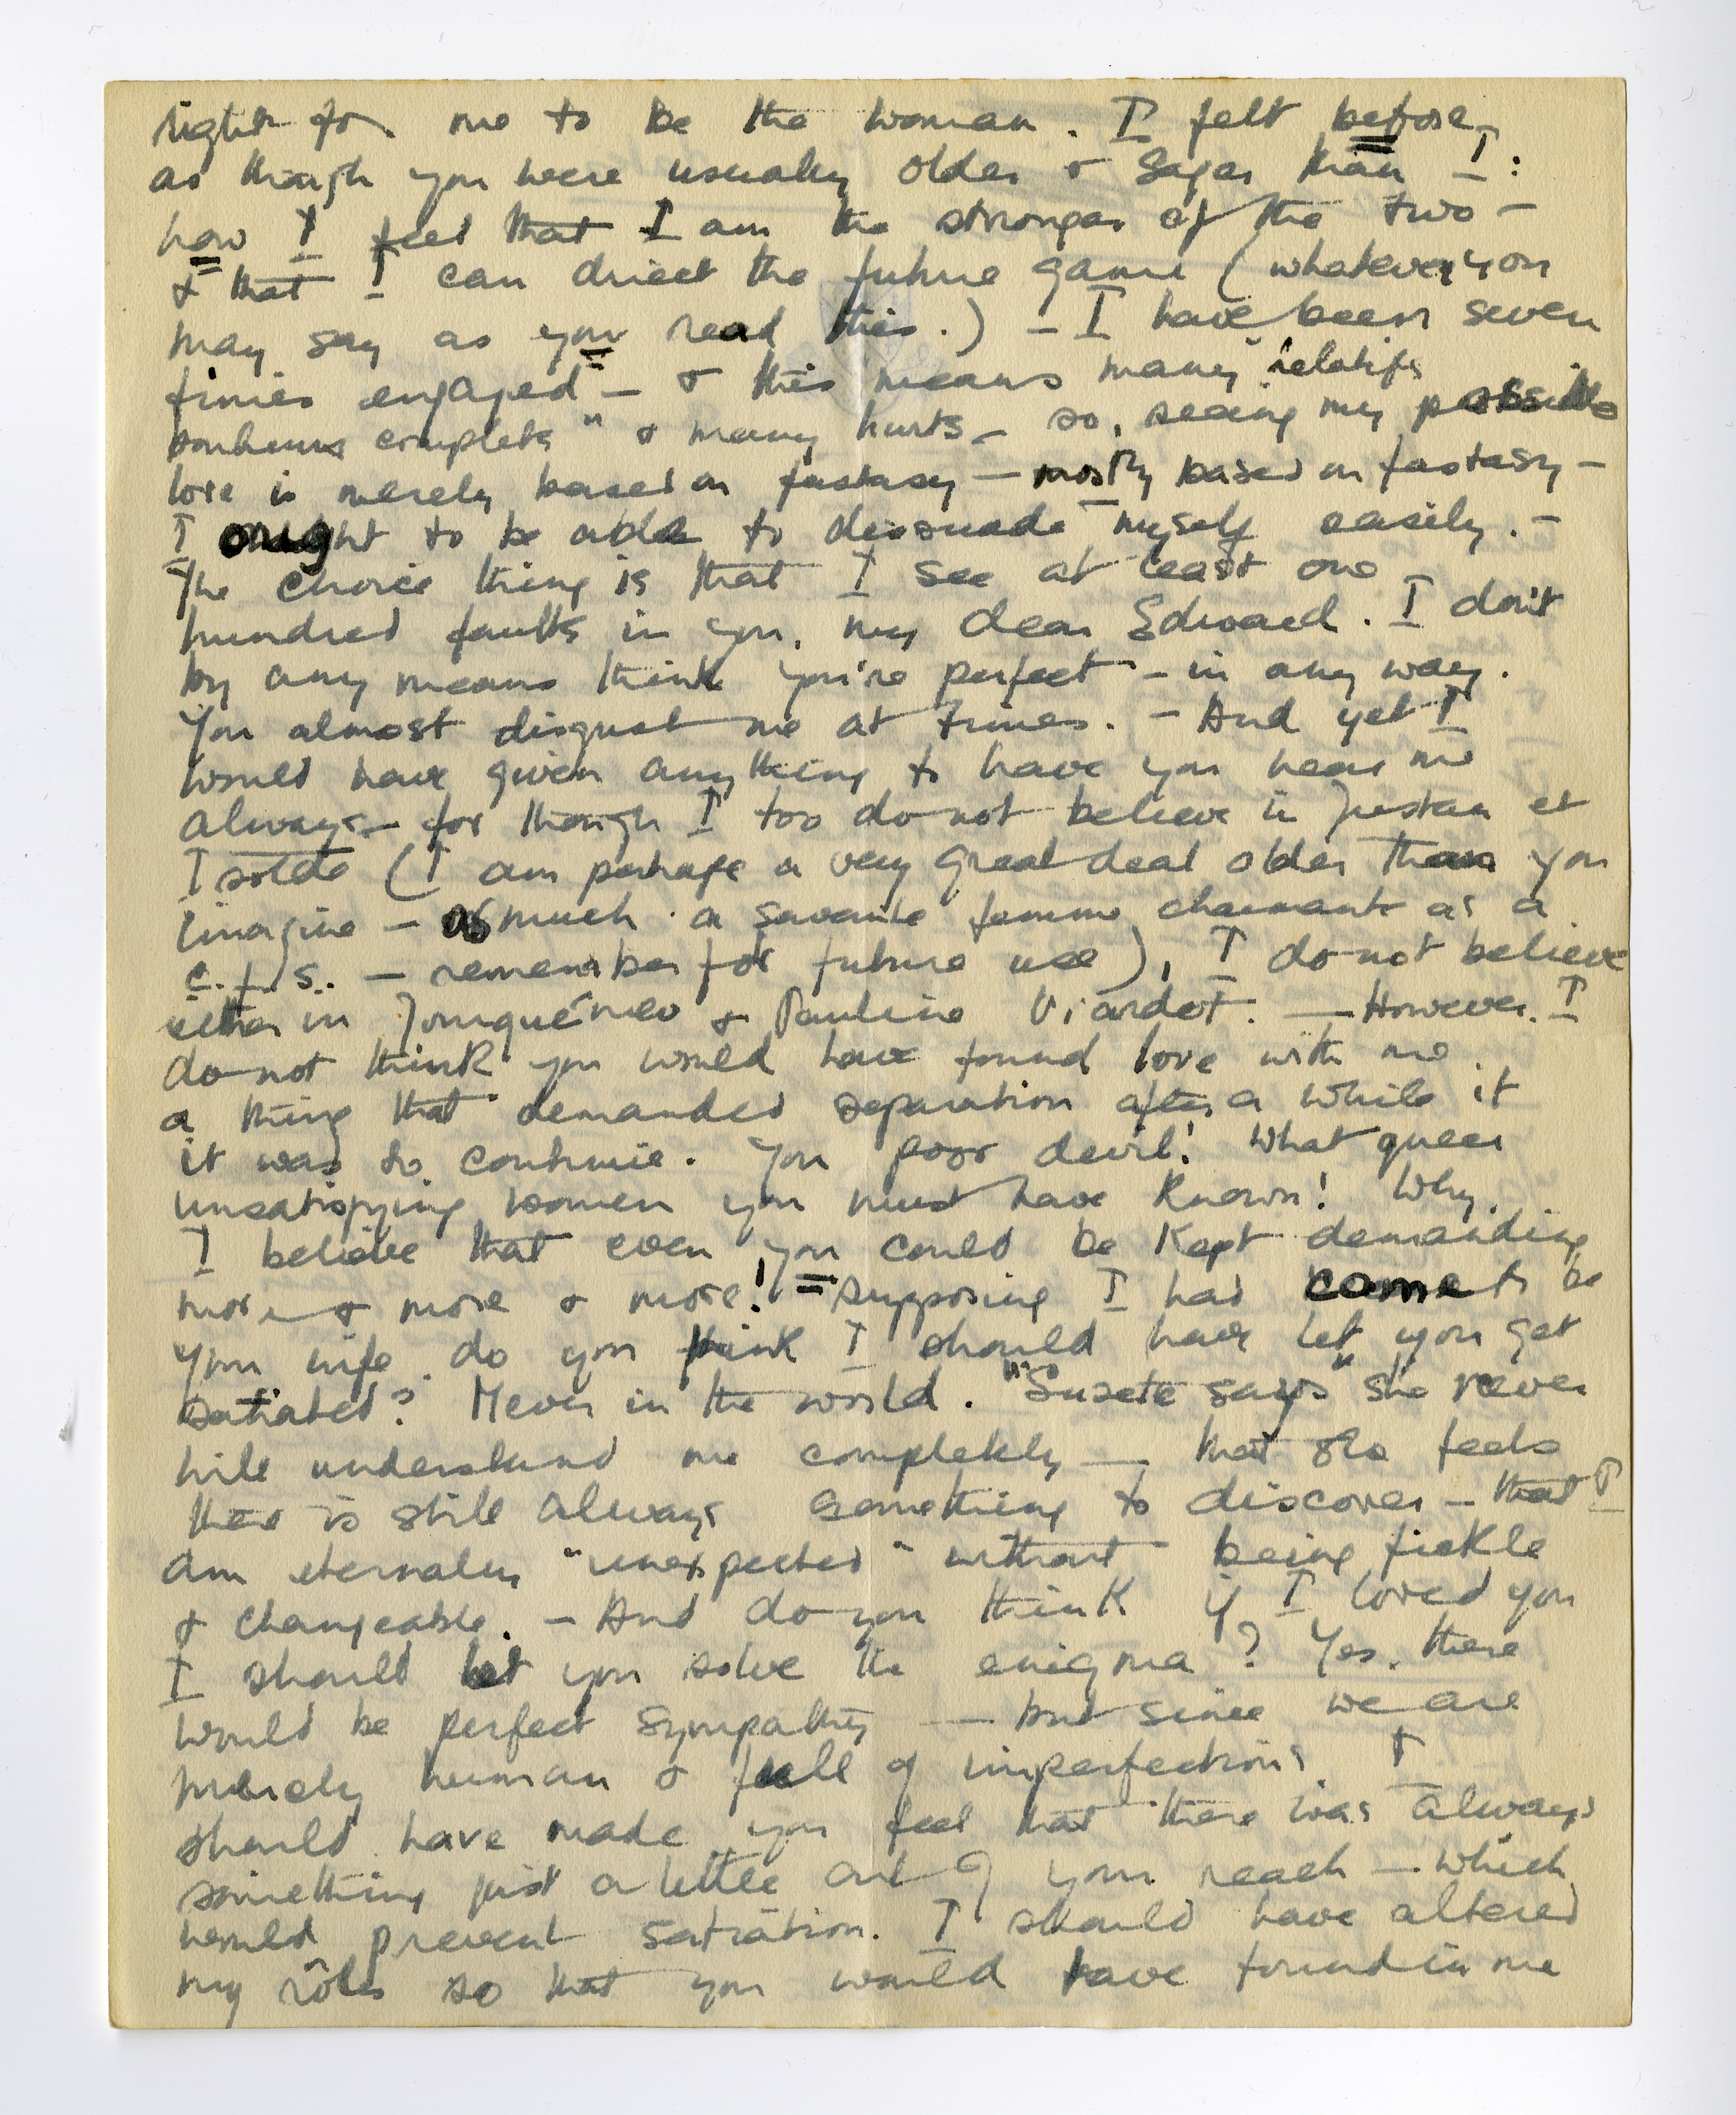 righter for me to be the woman. I felt before,
as though you were usually older & sager than I:
now I feel that I am the stronger of the two —
& that I can direct the future game (whatever you
may say as you read this.) — I have been seven
times engaged — & this means many "relatifs
bonheurs complets" & many hurts — so, seeing my possible
love is merely based on fantasy — mostly based on fantasy —
I ought to be able to dissuade myself easily. —
The choice thing is that I see at least one
hundred faults in you, my dear Edward. I don't
by any means think you're perfect — in any way.
You almost disgust me at times. — And yet I
would have given anything to have you near me
always — for though I too do not believe in Tristan et
Isolde (I am perhaps a very great deal older than you
imagine — as much a savante femme charmante as a
c.f.s. — remember for future use), I do not believe
either in & Pauline Viardot. — However, I
do not think you would have found love with me
a thing that demanded separation after a while if
it was to continue. You poor devil! What queer
unsatisfying women you must have known! Why,
I believe that even you could be kept demanding
more & more & more! — Supposing I had come to be
your wife, do you think I should have let you get
satiated? Never in the world. "Suzete says" she never
will understand me completely — that she feels
there is still always something to discover — that I
am eternally "unexpected" without being fickle
& changeable. — And do you think if I loved you
I should let you solve the enigma? Yes, there
would be perfect sympathy — but since we are
merely human & full of imperfections, I
should have made you feel that there was always
something just a little out of your reach — which
would prevent satiation. I should have altered
my rôles so that you would have found in me